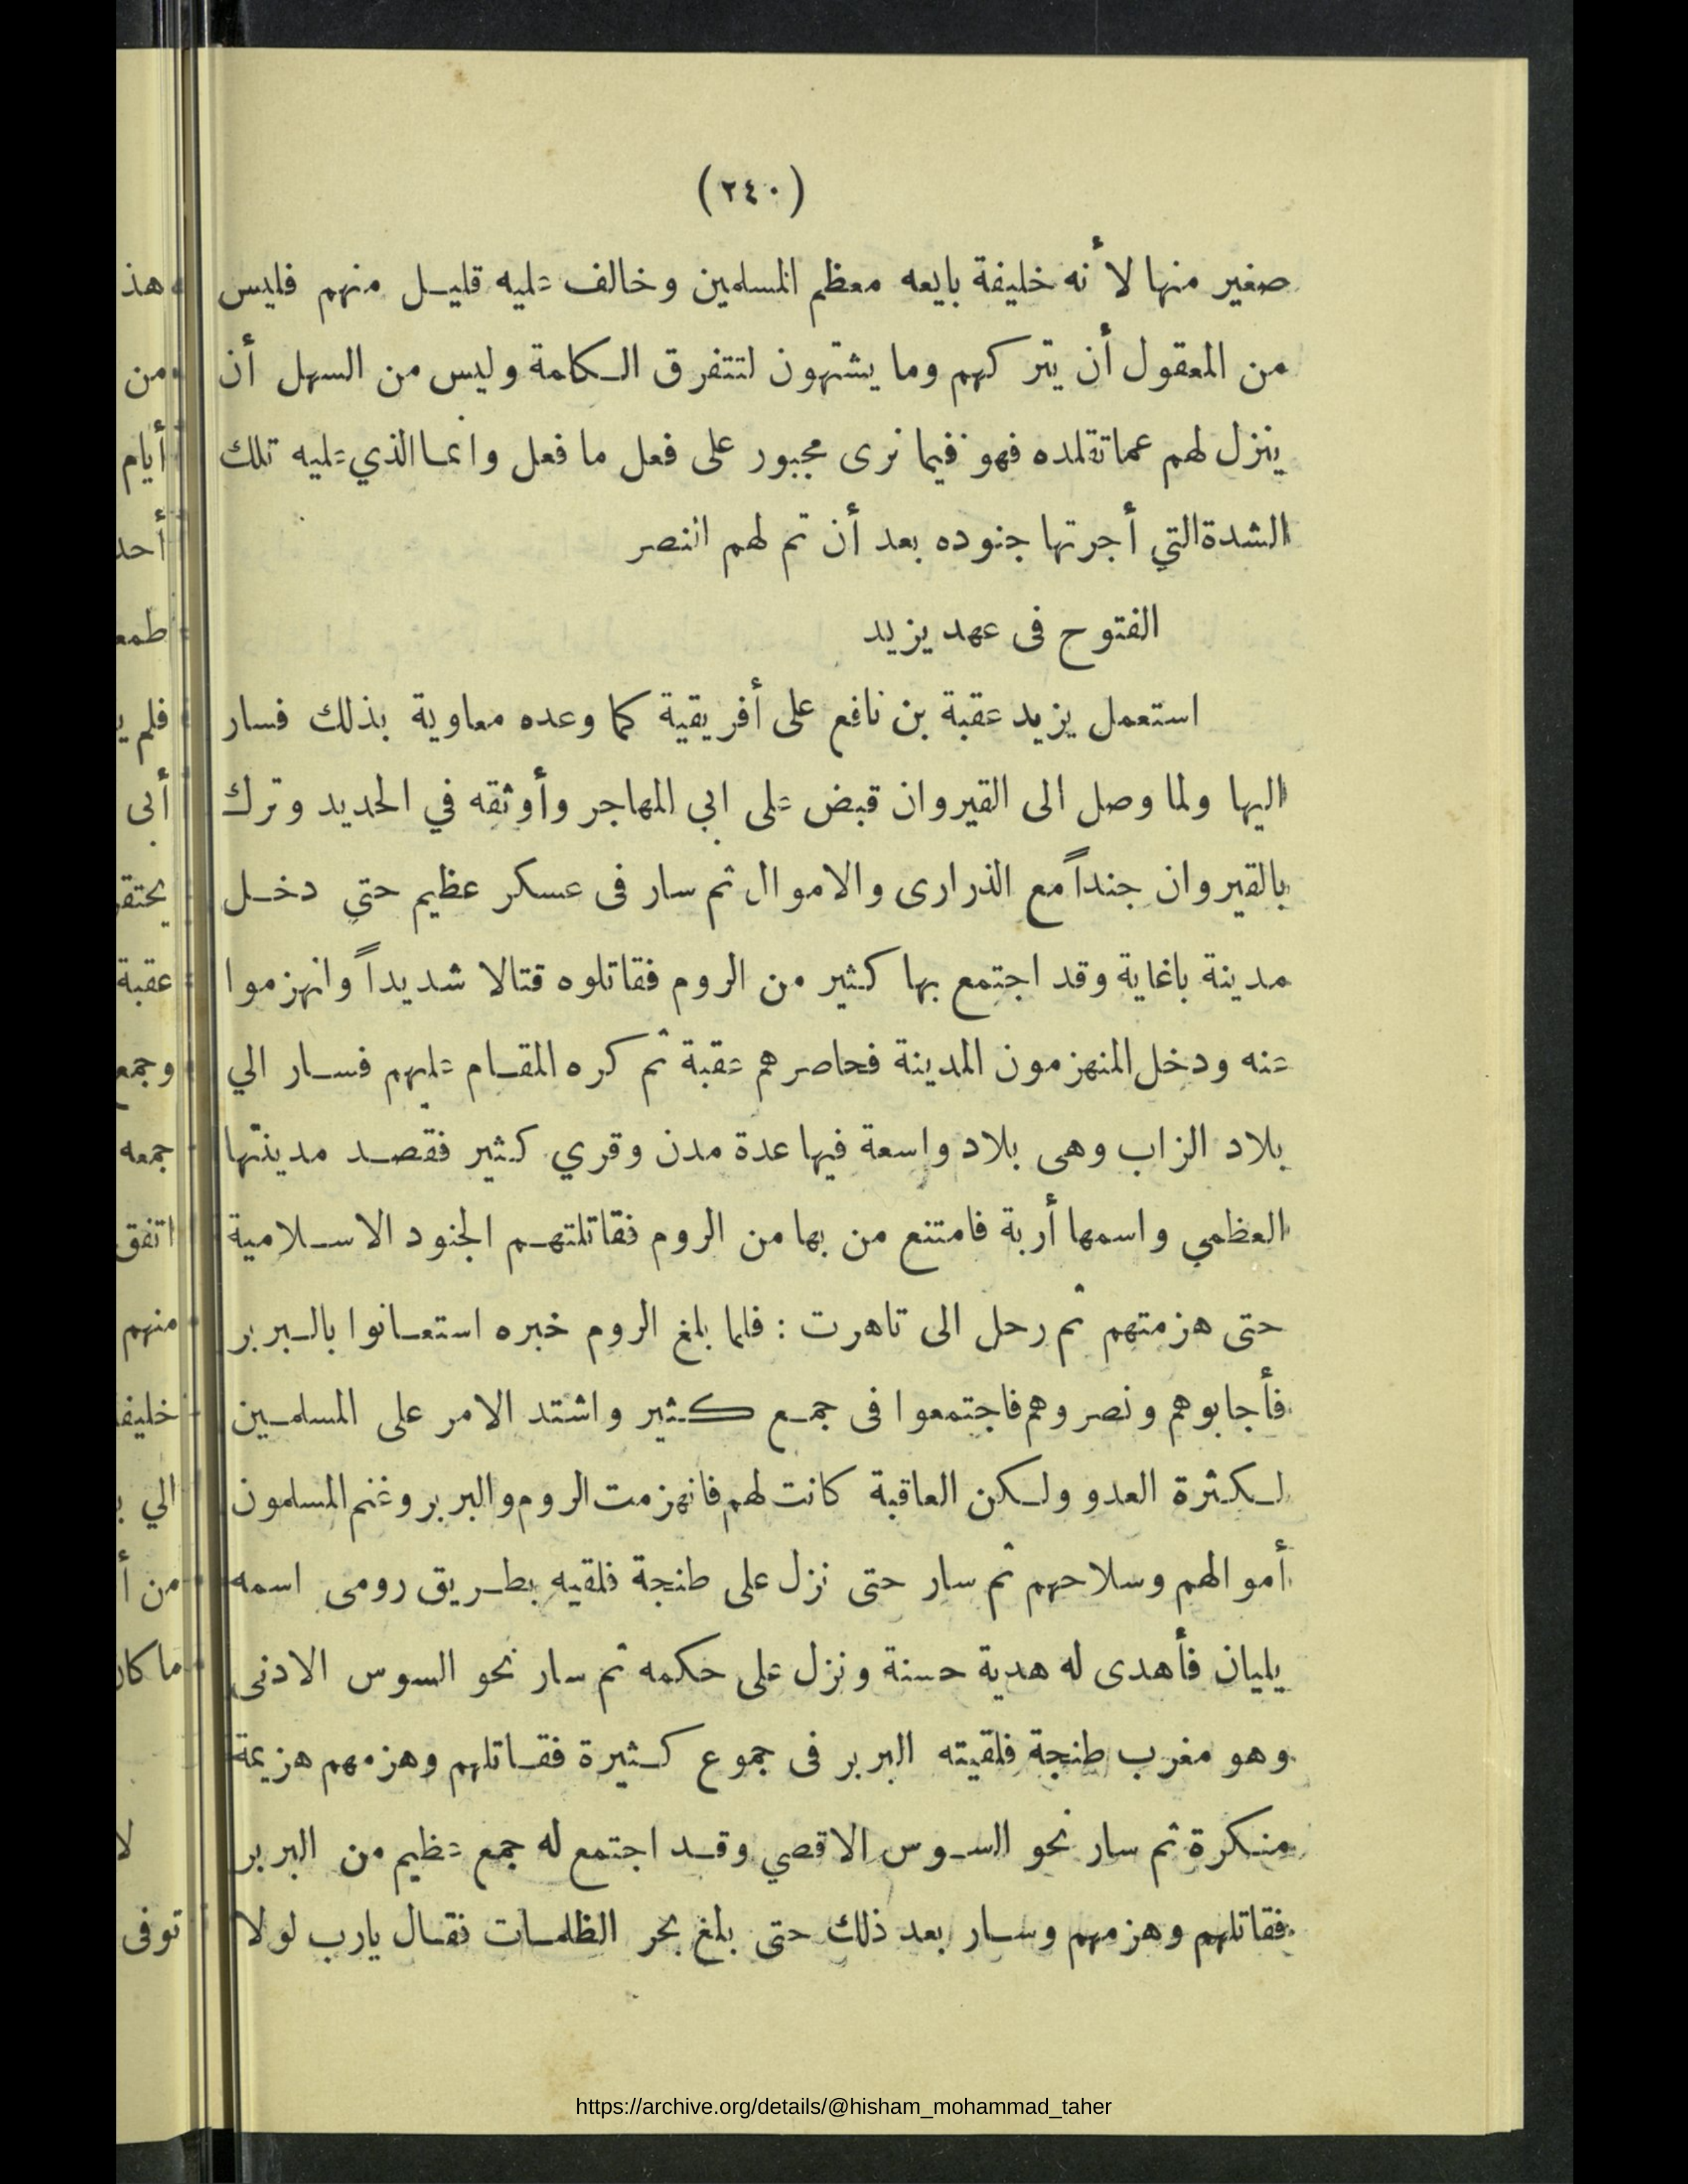 (٢٤٠)
صغير منها لأنه خليفة بايعه معظم المسلمين وخالف عليه قليل منهم فليس
من المعقول أن يتركهم وما يشتهون لتتفرق الكلمة وليس من السهل أن
ينزل لهم عما تقلده فهو فيما نرى مجبور على فعل ما فعل وانما الذي عليه تلك
الشدة التي أجرتها جنوده بعد أن تم لهم النصر
الفتوح فى عهد يزيد
استعمل يزيد عقبة بن نافع على أفريقية كما وعده معاوية بذلك فسار
اليها ولما وصل الى القيروان قبض على ابي المهاجر وأوثقه في الحديد وترك
بالقيروان جنداً مع الذرارى والاموال ثم سار فى عسكر عظيم حتي دخل
مدينة باغاية وقد اجتمع بها كثير من الروم فقاتلوه قتالا شديداً وانهزموا
عنه ودخل المنهزمون المدينة فحاصرهم عقبة ثم كره المقام عليهم فسار الي
بلاد الزاب وهى بلاد واسعة فيها عدة مدن وقري كثير فقصد مدينتها
العظمي واسمها أربة فامتنع من بها من الروم فقاتلتهم الجنود الاسلامية
حتى هزمتهم ثم رحل الى تاهرت : فلما بلغ الروم خبره استعانوا بالبربر
فأجابوهم ونصروهم فاجتمعوا فى جمع كثير واشتد الامر على المسلمين
لكثرة العدو ولكن العاقبة كانت لهم فانهزمت الروم والبربر وغنم المسلمون
أموالهم وسلاحهم ثم سار حتى نزل على طنجة فلقيه بطريق رومى اسمه
يليان فأهدى له هدية حسنة ونزل على حكمه ثم سار نحو السوس الادنى
وهو مغرب طنجة فلقيته البربر فى جموع كثيرة فقاتلهم وهزمهم هزيمة
منكرة ثم سار نحو السوس الاقصي وقد اجتمع له جمع عظيم من البربر
فقاتلهم وهزمهم وسار بعد ذلك حتى بلغ بحر الظلمات فقال يارب لولا
هذ
من
أيام
أحد
طمع
فلم
أبى
يحتقر
عقبة
وجمع
جمعه
اتفق
منهم
خليفة
الي
من
ما كان
لا
توفى
https://archive.org/details/@hisham_mohammad_taher